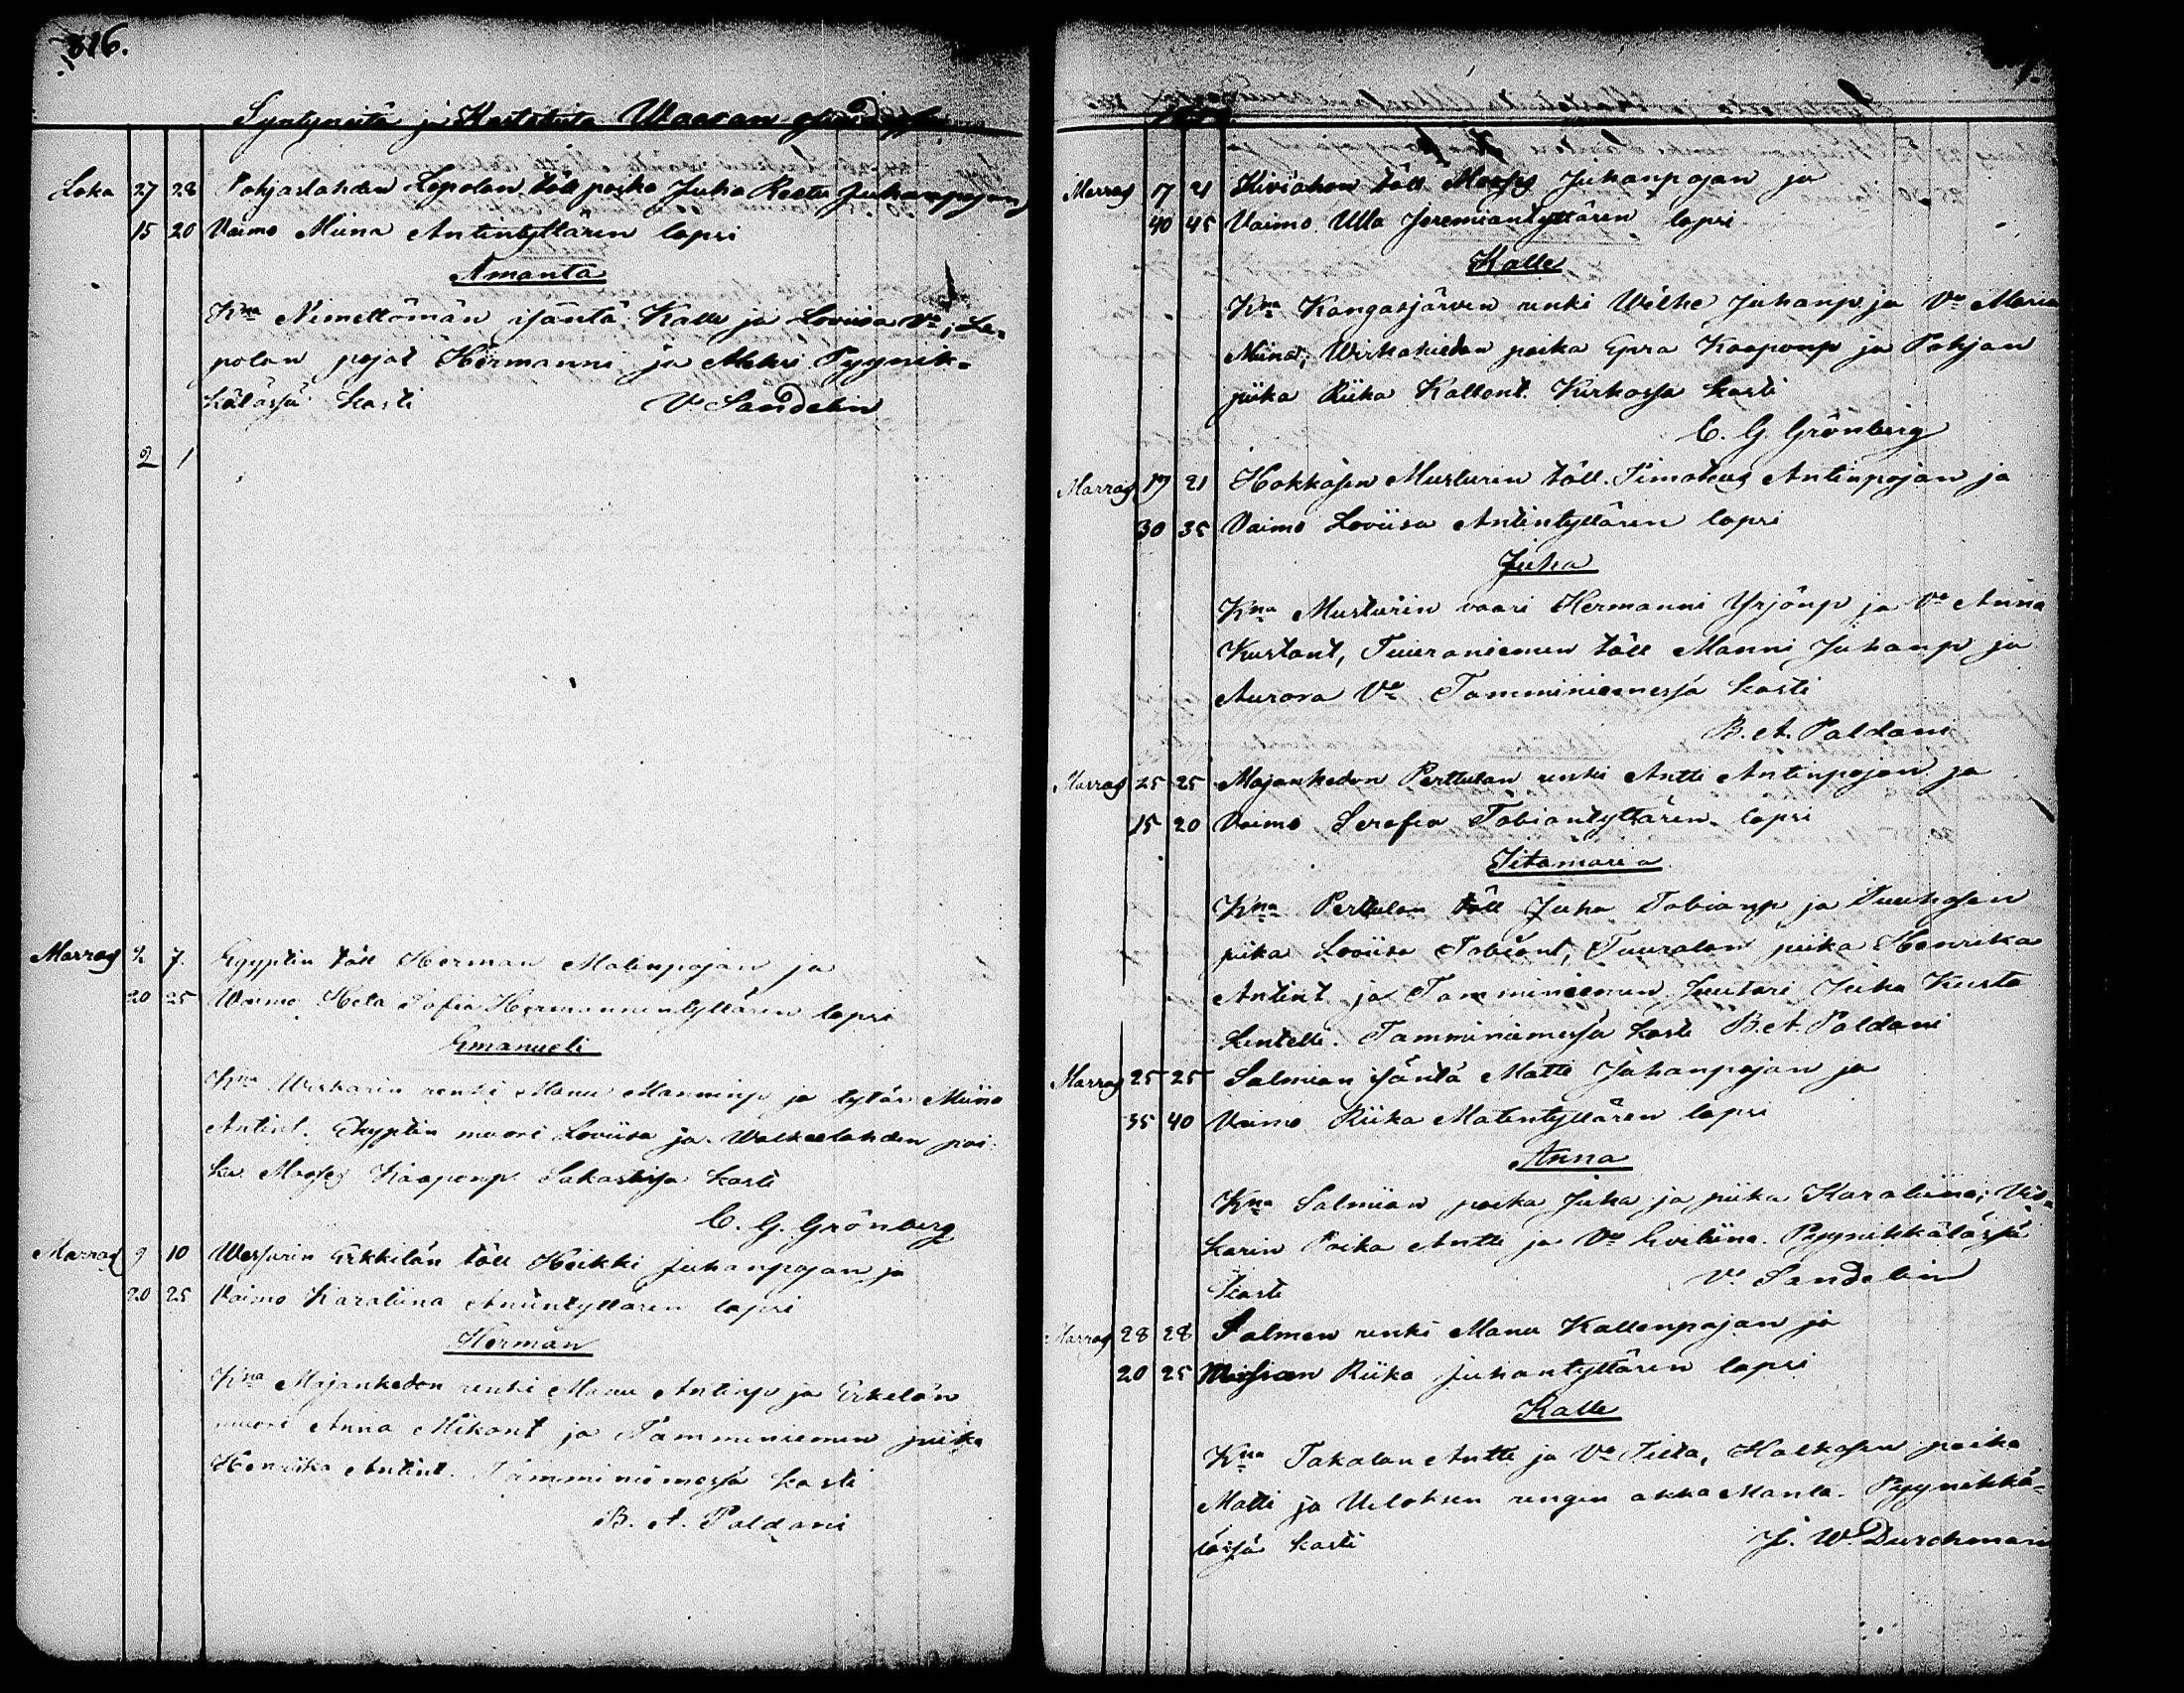 316.
Syntyneitä ja Kastetuita Waaran
Loka 27 28 Pohjaslahden Lepolan töll poika Juha Reetu Juhanpojan
15 20 Vaimo Miina Antintyttären lapsi
Amanta
Kna Nimettömän isäntä Kalle ja Loviisa Vo, Le-
polan pojat Hermanni ja Mikki Pyynik-
kälässä kasti V. Sandelin
2 1
Marras 2 7. Egyptin töll Herman Matinpojan ja
20 25 Waimo Heta Sofia Hermannintyttären lapsi
Emanueli
Kna Wiskarin renki Manu Manninp ja tytär Miina
Antint. Egyptin muori Loviisa ja Walkeelahden poi-
ka Moses Kaaponp. Sakastissa kasti
C. G. Grönberg
Marras 9 10 Wessarin Erkkilän töll Heikki Juhanpojan ja
20 25 Vaimo Karoliina Antintyttären lapsi
Herman
Kna Majankedon renki Manu Antinp ja Erkelän
muori Anna Mikont ja Tamminiemen piika
Henriika Antint. Tamminiemessä kasti
B. A. Paldani
Marras 17 21 Kiviahon töll Moses Juhanpojan ja
40 45 Vaimo Ulla Jeremiantyttären lapsi
Kalle
Kna Kangasjärven renki Wilhe Juhanp ja Vo Maria
Miina, Wirkakiedon poika Epra Kaaponp ja Pohjan
piika Riika Kallent. Kirkossa kasti
C. G. Grönberg
Marras 17 21 Hokkasen Musturin töll. Timoteus Antinpojan ja
30 35 Vaimo Loviisa Antintyttären lapsi
Juha
Kna Musturin vaari Hermanni Yrjönp ja Vo Anna
Kustant, Tuuraniemen töll Manni Juhanp ja
Aurora Vo Tamminiemessä kasti
B. A. Paldani
Marras 25 25 Majankedon Perttulan renki Antti Antinpojan ja
15 20 Vaimo Serafia Tobiantyttären lapsi
Iitamaria
Kna Perttulan töll Juha Tobianp ja
piika Loviisa Tobiant, Tuuralan piika Henrika
Antint ja Tamminiemen Juutari Juha Kusta
Lintelli. Tamminiemessä kasti B. A. Paldani
Marras 25 25 Salmian isäntä Matti Juhanpojan ja
35 40 Vaimo Riika Matintyttären lapsi
Anna
Kna Salmian poika Juha ja piika Karoliina; Vis-
karin Poika Antti ja Vo Eveliina. Pyynikkälässä
kasti V. Sandelin
Marras 28 28 Salmen renki Manu Kallenpojan ja
20 25 Riika Juhantyttären lapsi
Kalle
Kna Takalan Antti ja Vo Tilta, Halkosen poika
Matti ja Uloksen rengin akka Manta. Pyynikkä-
lässä kasti J. W. Durchman